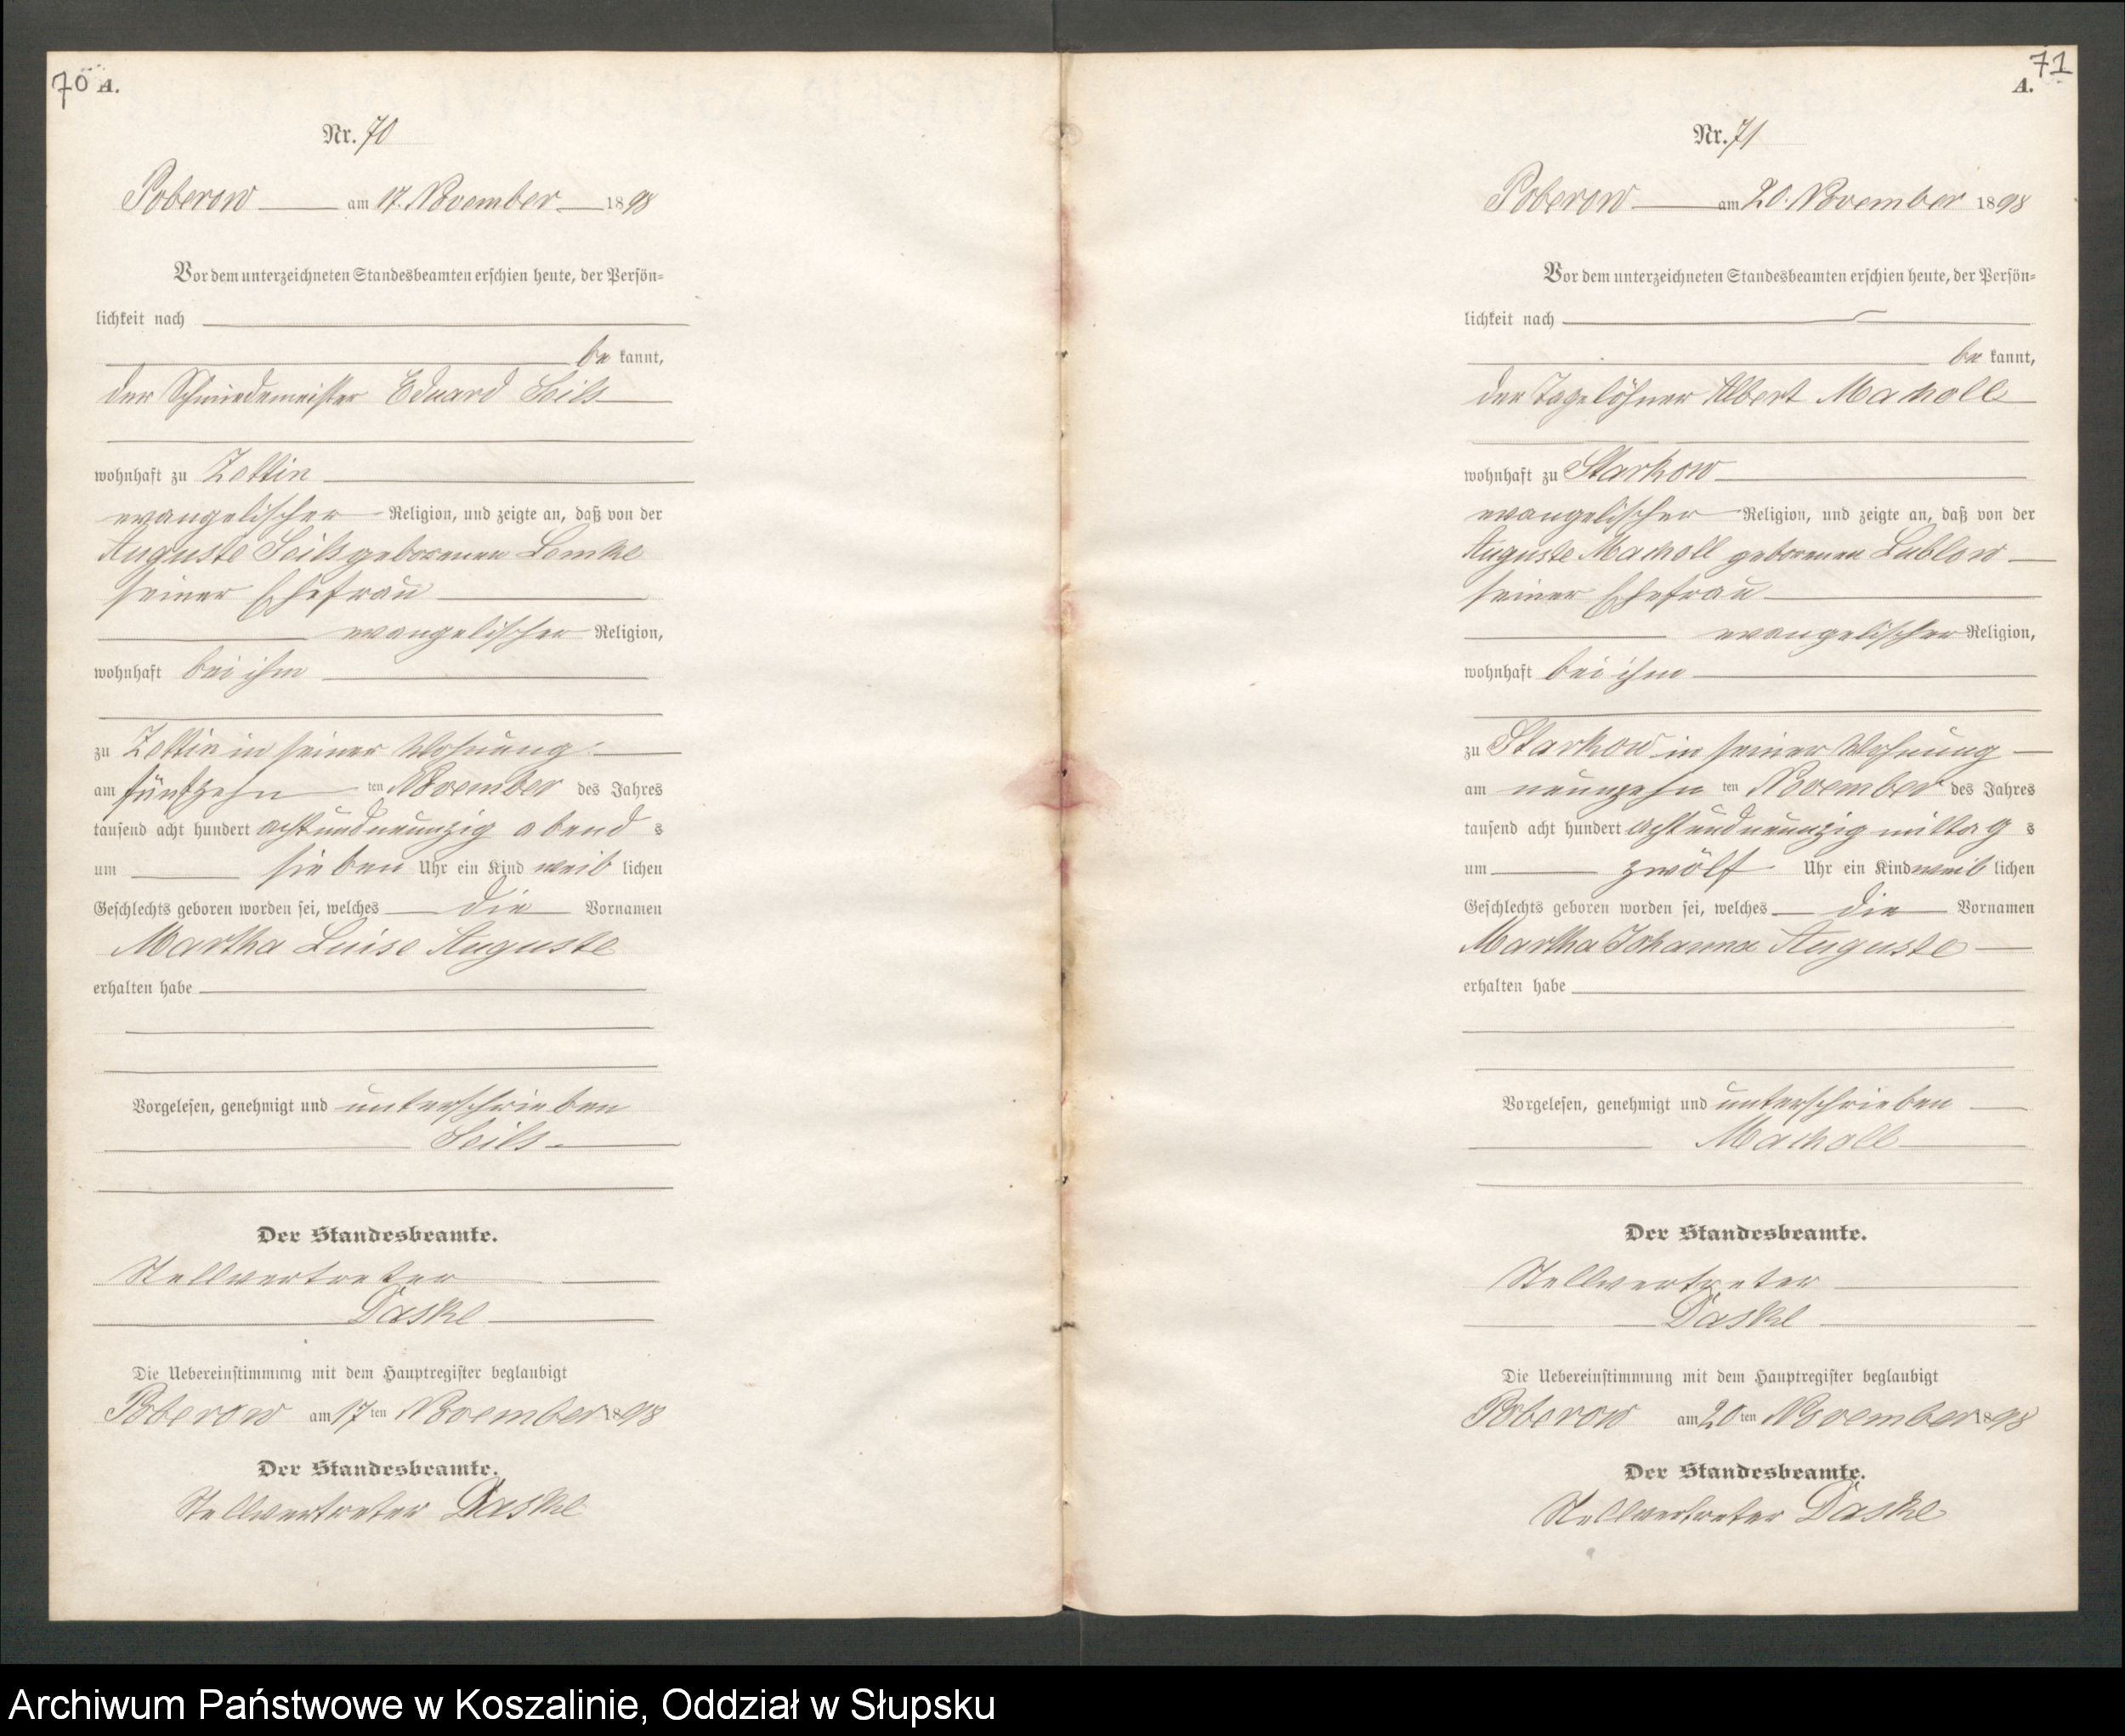 70 A.
Nr. 70
Poberow am 17. November 1898
Vor dem unterzeichneten Standesbeamten erschien heute, der Persön=
lichkeit nach
be kannt,
der Schmiedemeister Eduard Seils
wohnhaft zu Zettin
evangelischer Religion, und zeigte an, daß von der
Auguste Seils geborenen Lemke
seiner Ehefrau
evangelischer Religion,
wohnhaft bei ihm
zu Zettin in seiner Wohnung
am fünfzehn ten November des Jahres
tausend acht hundert achtundneunzig abend s
um sieben Uhr ein Kind weib lichen
Geschlechts geboren worden sei, welches die Vornamen
Martha Luise Auguste
erhalten habe
Vorgelesen, genehmigt und unterschrieben
Seils
Der Standesbeamte.
Stellvertreter
Daske
Die Uebereinstimmung mit dem Hauptregister beglaubigt
Poberow am 17 ten November 1898
Der Standesbeamte.
Stellvertreter Daske
71
A.
Nr. 71
Poberow am 20. November 1898
Vor dem unterzeichneten Standesbeamten erschien heute, der Persön=
lichkeit nach
be kannt,
der Tagelöhner Albert Macholl
wohnhaft zu Starkow
evangelischer Religion, und zeigte an, daß von der
Auguste Macholl geborenen Lublow
seiner Ehefrau
evangelischer Religion,
wohnhaft bei ihm
zu Starkow in seiner Wohnung
am neunzehn ten November des Jahres
tausend acht hundert achtundneunzig mittag s
um zwölf Uhr ein Kind weib lichen
Geschlechts geboren worden sei, welches die Vornamen
Martha Johanna Auguste
erhalten habe
Vorgelesen, genehmigt und unterschrieben
Macholl
Der Standesbeamte.
Stellvertreter
Daske
Die Uebereinstimmung mit dem Hauptregister beglaubigt
Poberow am 20 ten November 1898
Der Standesbeamte.
Stellvertreter Daske
Archiwum Państwowe w Koszalinie, Oddział w Słupsku